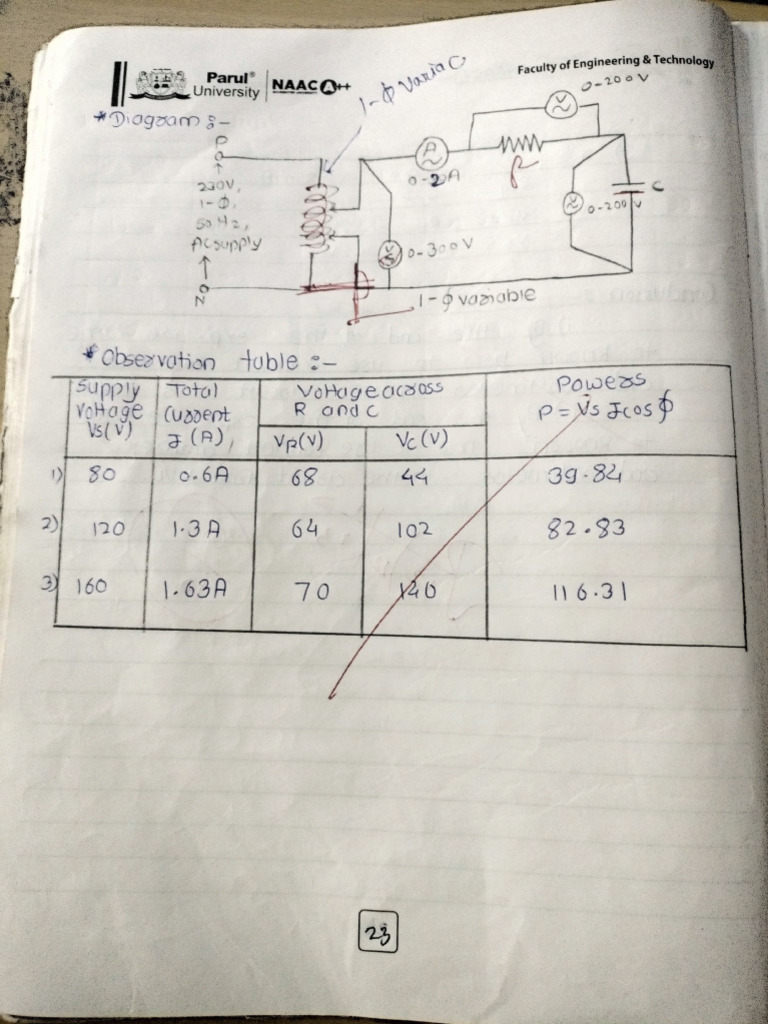 Parul® University NAAC A++
Faculty of Engineering & Technology
1-ϕ Variac
0-200V
* Diagram :-
P
A
0-2A
R
230V,
1-Φ,
50 Hz,
AC supply
C
0-200V
0-300V
N
1-ϕ variable
* Observation table :-
Supply Voltage Vs(V)
Total Current I (A),
Voltage across R and C
Powers P = Vs I cos ϕ
VR(V)
Vc (V)
1) 80 0.6A 68 44 39.84
2) 120 1.3A 64 102 82.83
3) 160 1.63A 70 140 116.31
23